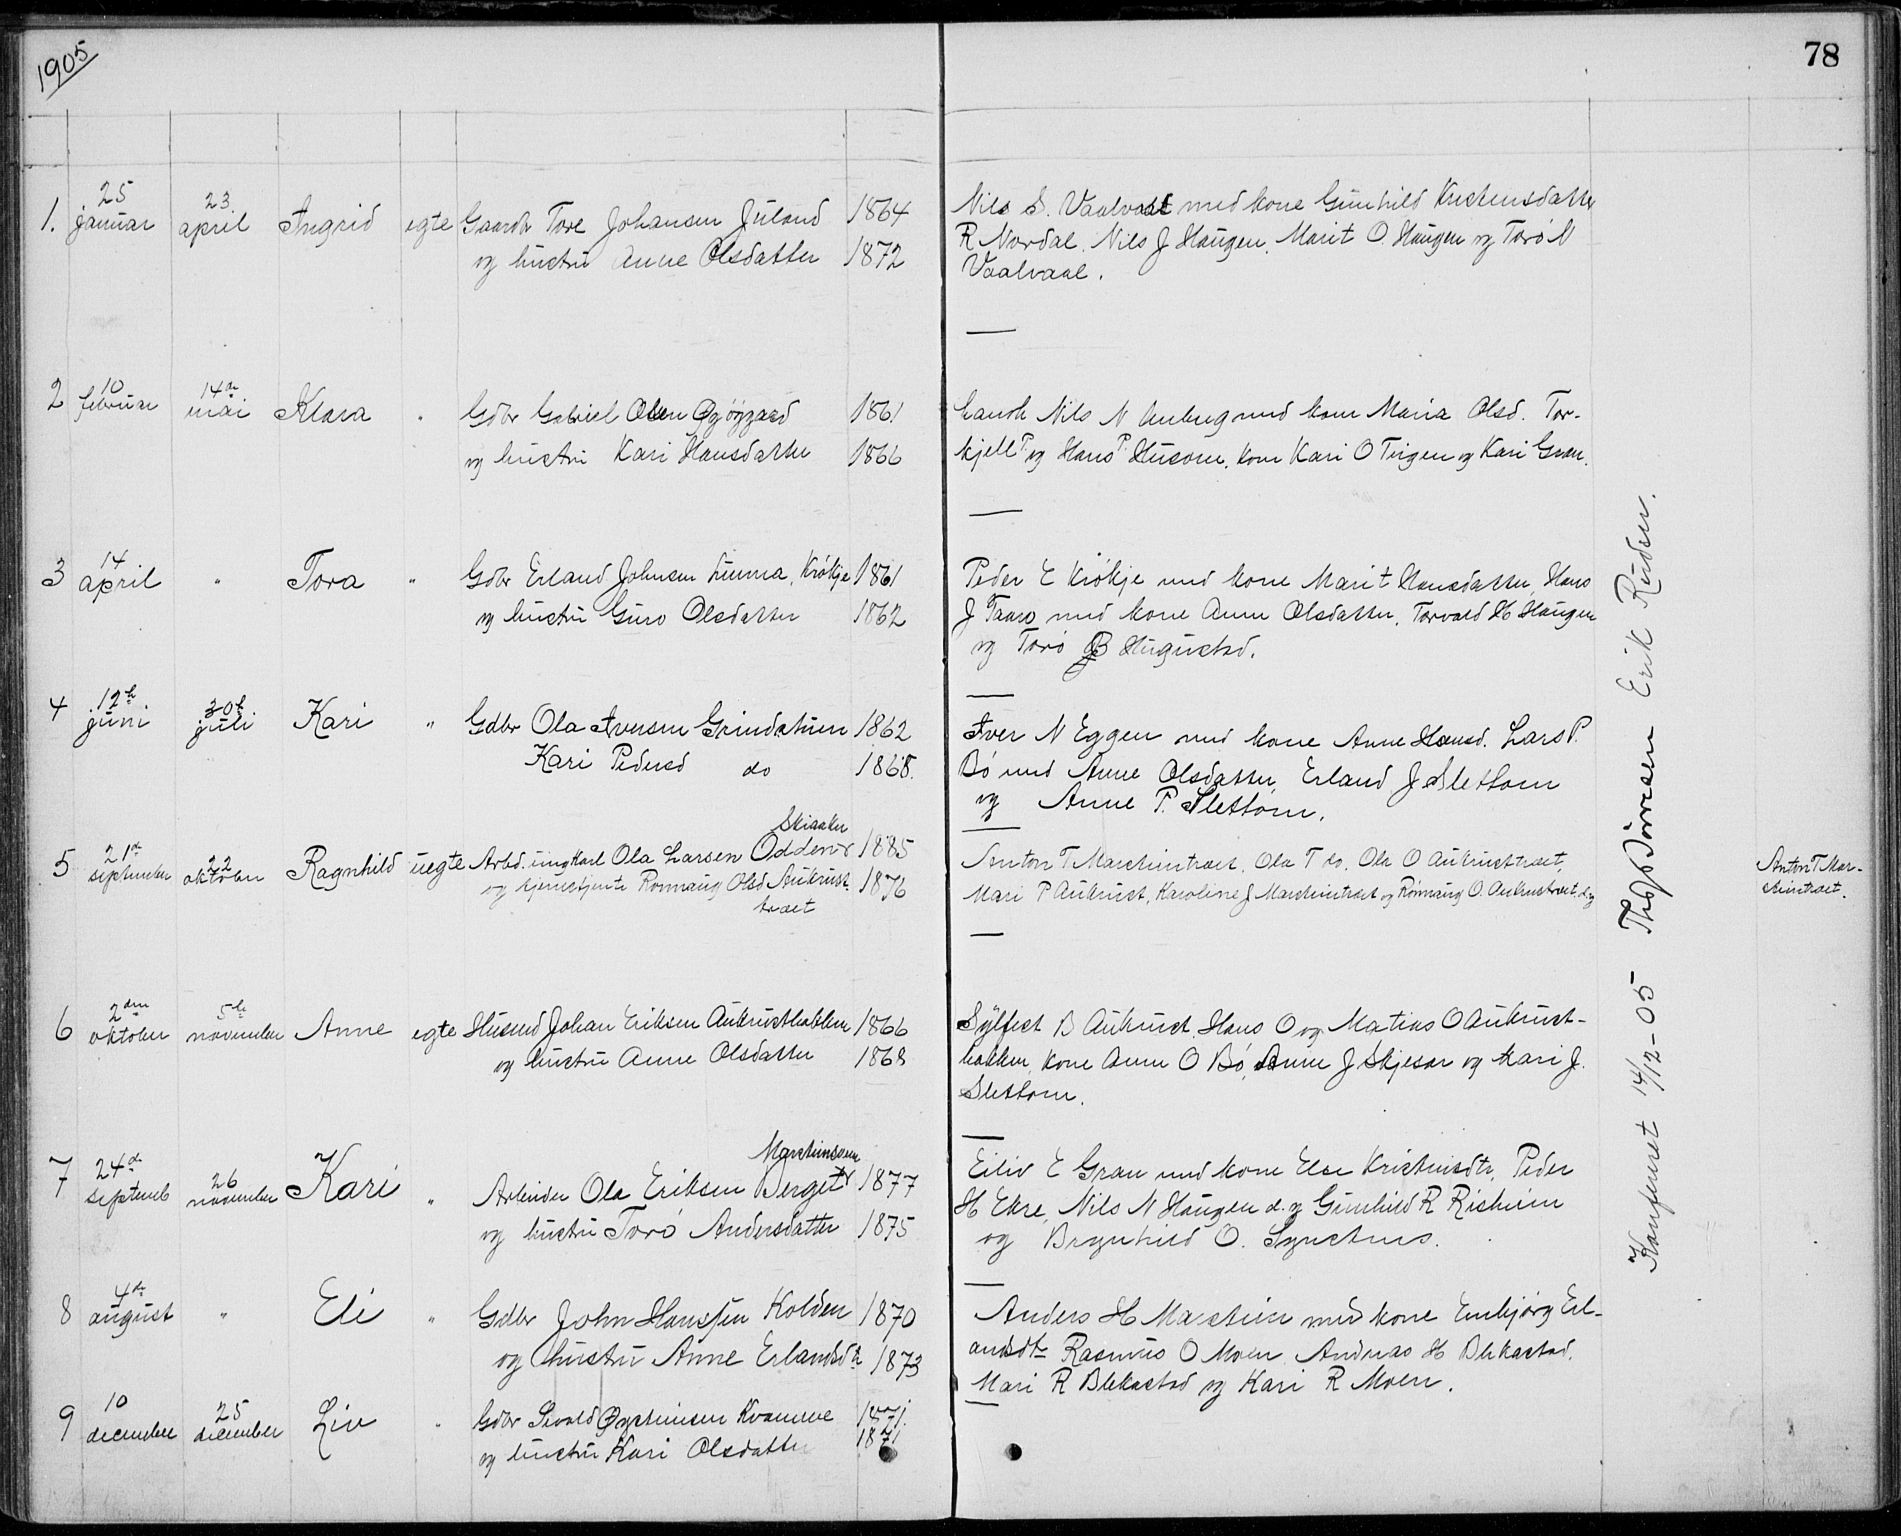 1905
78
1. 25 januar 23 april Ingrid egte Gaardbr Tore Johansen Juland 1864
og hustru Anne Olsdatter 1872
Nils S. Vaalvaal med kone Gunhild Kristensdatter
R Nordal. Nils J Haugen. Marit O. Haugen og Torø N
Vaalvaal.
2 10 februar 14de mai Klara " Gdbr Gabriel Olsen 1861
og hustru Kari Hansdatter 1866
Nils N med kone Maria Olsd. Tor-
kjell P og Hans P Husom, kone Kari O og Kari Gran.
3 14 april " Tora " Gdbr Erland Johnsen Krókje 1861
og hustru Guro Olsdatter 1862
Peder E Krókje med kone Marit Hansdatter, Hans
J med kone Anne Olsdatter, Torvald H Haugen
og Toró B
4 12te juni 30te juli Kari " Gdbr Ola Iversen Grindstuen 1862
Kari Pedersd do 1868.
Iver N Eggen med kone Anne Hansd. Lars P.
Bó med Anne Olsdatter, Erland J Slettom
og Anne P. Slettom.
5 21de september 22 oktober Ragnhild uegte Arbd. ungkarl Ola Larsen Odden Skiaker 1885
og tjenestjente Ronnaug Olsd Aukrust- 1876
træet
Anton T Marsteintræet, Ola T do. Ola O Aukrusttræet,
Mari P Aukrust, Karoline J Marsteintræet og Rønnaug O. Aukrusttræet d. y
Anton T Mar-
steintræet.
6 2den oktober 5te november Anne egte Husmd Johan Eriksen Aukrustbakken 1866
og hustru Anne Olsdatter 1868
Sylfest B Aukrust. Hans O og Matias O Aukrust-
bakken, kone Anne O Bó, Anne J Skjesar og Kari J.
Slettom.
7 24de septemb 26 november Kari " Arbeider Ola Eriksen Berget 1877
og hustru Toró Andersdatter 1875
Eiliv E Gran med kone Else Kristensdtr, Peder
H Ekre, Nils N Haugen d. y Gunhild R Risheim
og Brynhild O.
8 4de august " Eli " Gdbr John Hanssen Kolden 1870
og hustru Anne Erlandsdtr 1873
Anders H Marstein med kone Embjørg Erl-
andsdtr Rasmus O Moen Andreas H Blekastad.
Mari R Blekastad og Kari R Moen.
9 10 december 25 december Liv " Gdbr Sivald Øysteinsen Kvamme 1871.
og hustru Kari Olsdatter 1871
Konfereret 14/12-05 Erik Rudsen.